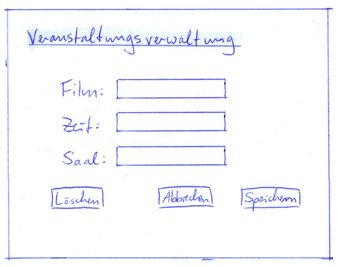 Veranstaltungsverwaltung
Film:
Zeit:
Saal:
Löschen Abbrechen Speichern